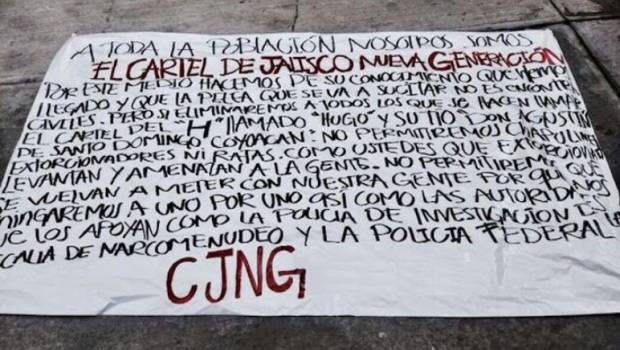 A TODA LA POBLACIÓN NOSOTROS SOMOS
EL CARTEL DE JALISCO NUEVA GENERACIÓN
POR ESTE MEDIO HACEMOS DE SU CONOCIMIENTO QUE HEMOS
LLEGADO Y QUE LA PELEA QUE SE VA A SUCITAR NO ES ENCONTRA
CIVILES. PERO SI ELIMINAREMOS A TODOS LOS QUE SE HACEN LLAMAR
EL CARTEL DEL -H- LLAMADO "HUGO" Y SU TIO "DON AGUSTIN"
DE SANTO DOMINGO COYOACAN. NO PERMITIREMOS CHAPULINES
EXTORCIONADORES NI RATAS. COMO USTEDES QUE EXTORCIONAN
LEVANTAN Y AMENAZAN A LA GENTE. NO PERMITIREMOS QUE
SE VUELVAN A METER CON NUESTRA GENTE POR QUE NOS
CHINGAREMOS A UNO POR UNO ASI COMO LAS AUTORIDADES
QUE LOS APOYAN COMO LA POLICIA DE INVESTIGACION
FISCALIA DE NARCOMENUDEO Y LA POLICIA FEDERAL
CJNG